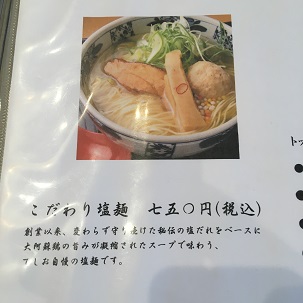 こだわり塩麺 七五〇円(税込)
創業以来、変わらず守り続けた秘伝の塩だれをベースに
大阿蘇鶏の旨みが凝縮されたスープで味わう、
お自慢の塩麺です。
ト